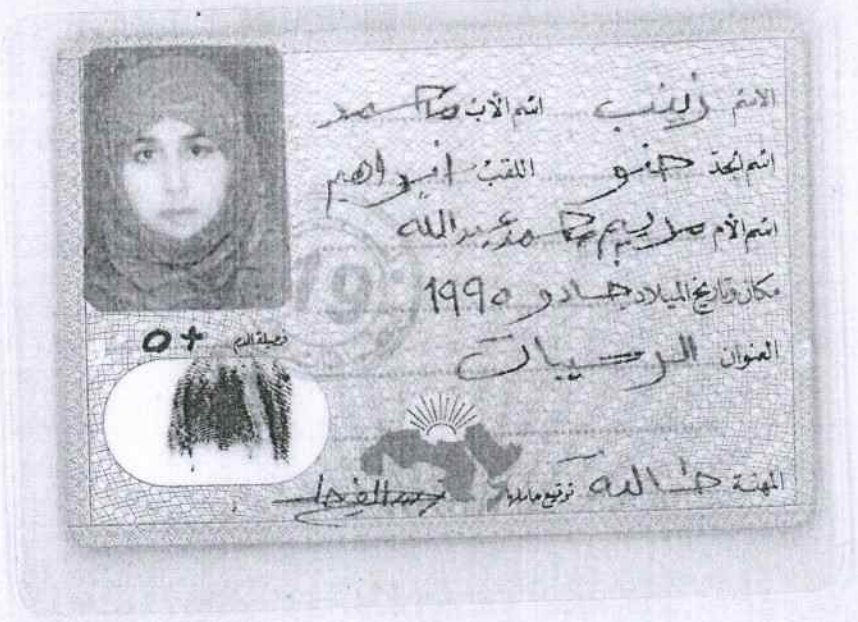 الاسم زينب اسم الأب محمد
اسم الجد اللقب ابراهيم
اسم الأم مريم محمد عبدالله
مكان وتاريخ الميلاد جادو 1990
العنوان الرحيبات
فصيلة الدم O+
المهنة طالبة توقيع حاملها